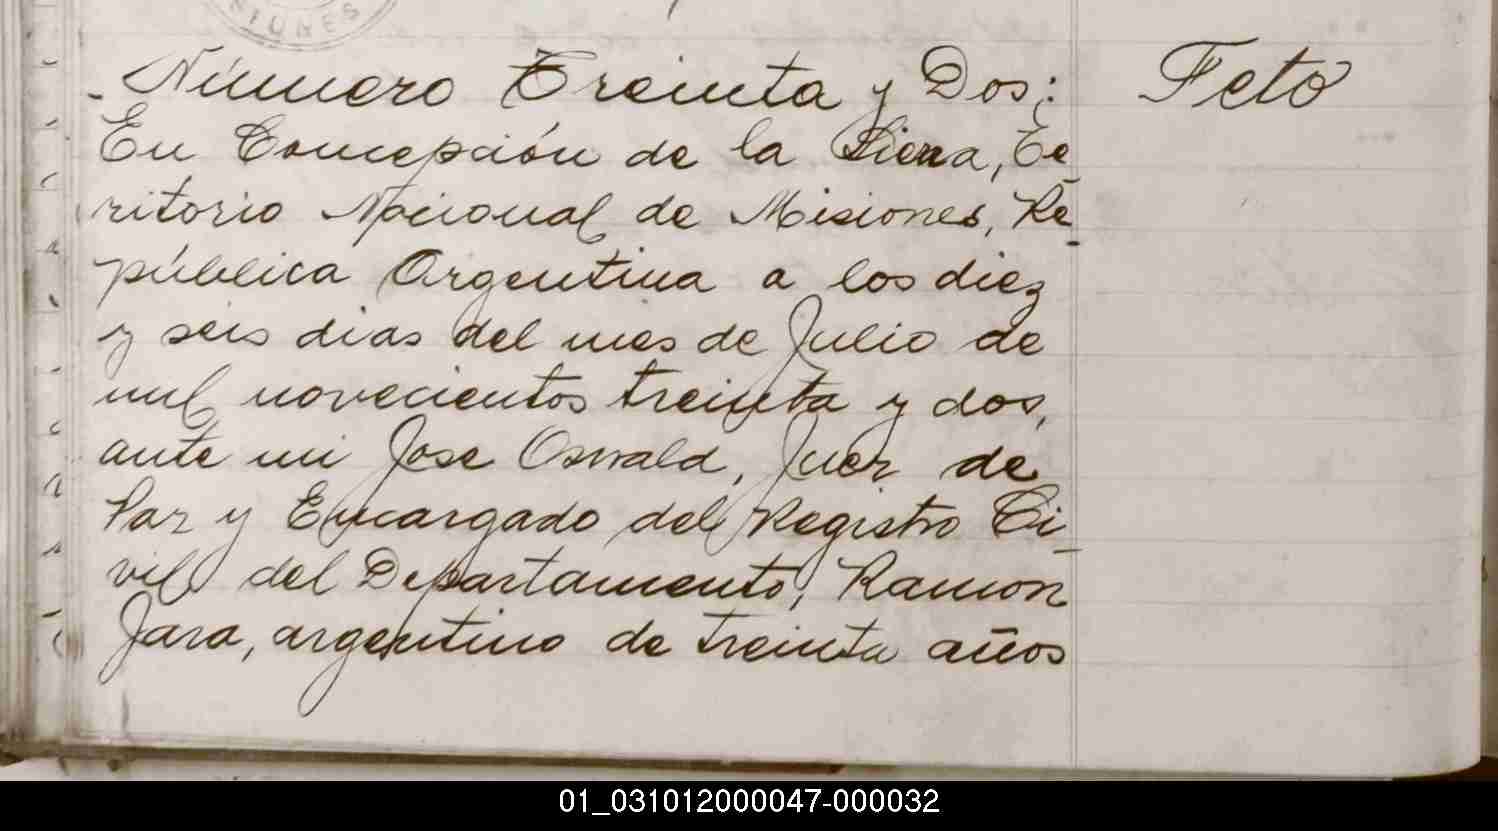 IONES
Número Treinta y Dos:
Feto
En Concepción de la Sierra, Te
rritorio Nacional de Misiones, Re-
pública Argentina a los diez
y seis dias del mes de Julio de
mil novecientos treinta y dos,
ante mi Jose Oswald, Juez de
Paz y Encargado del Registro Ci-
vil del Departamento, Ramon
Jara, argentino de treinta años
01_031012000047-000032